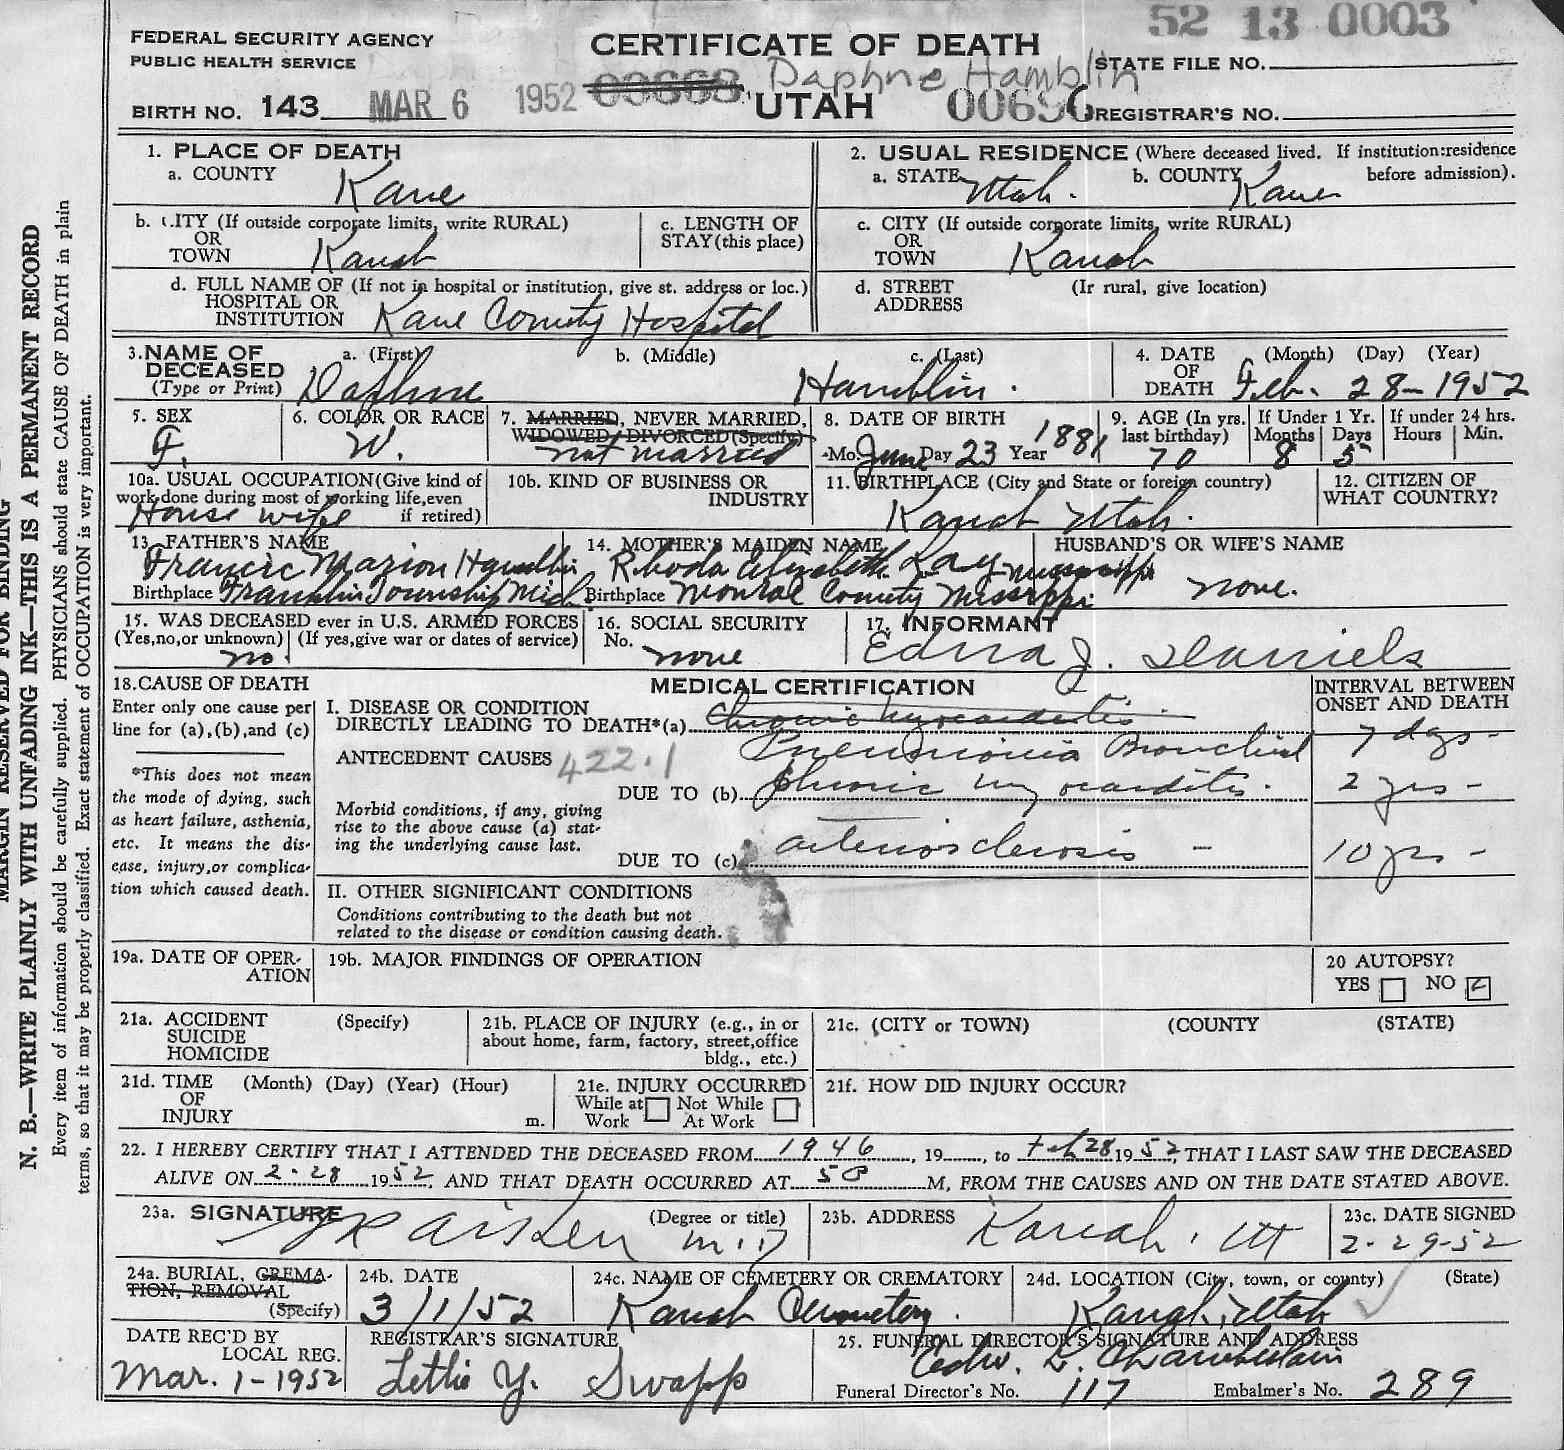 52 13 0003
FEDERAL SECURITY AGENCY
PUBLIC HEALTH SERVICE
CERTIFICATE OF DEATH
STATE FILE NO.
Daphne Hamblin
BIRTH NO. 143 MAR 6 1952 03668 UTAH 00696 REGISTRAR'S NO.
MARGIN RESERVED FOR BINDING
N. B.—WRITE PLAINLY WITH UNFADING INK—THIS IS A PERMANENT RECORD
Every item of information should be carefully supplied. PHYSICIANS should state CAUSE OF DEATH in plain
terms, so that it may be properly classified. Exact statement of OCCUPATION is very important.
1. PLACE OF DEATH
a. COUNTY Kane
2. USUAL RESIDENCE (Where deceased lived. If institution:residence
a. STATE Utah. b. COUNTY Kane before admission).
b. CITY (If outside corporate limits, write RURAL)
OR
TOWN Kanab
c. LENGTH OF
STAY(this place)
c. CITY (If outside corporate limits, write RURAL)
OR
TOWN Kanab
d. FULL NAME OF (If not in hospital or institution, give st. address or loc.)
HOSPITAL OR
INSTITUTION Kane County Hospital
d. STREET (Ir rural, give location)
ADDRESS
3. NAME OF a. (First) b. (Middle) c. (Last)
DECEASED
(Type or Print) Daphne Hamblin.
4. DATE (Month) (Day) (Year)
OF
DEATH Feb. 28-1952
5. SEX
F.
6. COLOR OR RACE
W.
7. MARRIED, NEVER MARRIED,
WIDOWED, DIVORCED (Specify)
not married
8. DATE OF BIRTH
Mo. June Day 23 Year 1881
9. AGE (In yrs.
last birthday)
70
If Under 1 Yr.
Months Days
8 5
If under 24 hrs.
Hours Min.
10a. USUAL OCCUPATION(Give kind of
work done during most of working life,even
House wife if retired)
10b. KIND OF BUSINESS OR
INDUSTRY
11. BIRTHPLACE (City and State or foreign country)
Kanab Utah.
12. CITIZEN OF
WHAT COUNTRY?
13. FATHER'S NAME
Francis Marion Hamblin
Birthplace Franklin Township Mich.
14. MOTHER'S MAIDEN NAME
Rhoda Elizabeth Lay Mississippi
Birthplace Monroe County Missrppi
HUSBAND'S OR WIFE'S NAME
none.
15. WAS DECEASED ever in U.S. ARMED FORCES
(Yes,no,or unknown) (If yes,give war or dates of service)
no.
16. SOCIAL SECURITY
No.
none
17. INFORMANT
Edna J. Daniels
18.CAUSE OF DEATH
Enter only one cause per
line for (a),(b),and (c)
*This does not mean
the mode of dying, such
as heart failure, asthenia,
etc. It means the dis-
ease, injury,or complica-
tion which caused death.
MEDICAL CERTIFICATION
INTERVAL BETWEEN
ONSET AND DEATH
I. DISEASE OR CONDITION
DIRECTLY LEADING TO DEATH*(a) Chronic Myocarditis
Pneumonia Bronchial 7 days-
ANTECEDENT CAUSES 422.1
DUE TO (b) Chronic myocarditis. 2 yrs-
Morbid conditions, if any, giving
rise to the above cause (a) stat-
ing the underlying cause last.
DUE TO (c) arteriosclerosis - 10 yrs-
II. OTHER SIGNIFICANT CONDITIONS
Conditions contributing to the death but not
related to the disease or condition causing death.
19a. DATE OF OPER-
ATION
19b. MAJOR FINDINGS OF OPERATION
20 AUTOPSY?
YES NO
21a. ACCIDENT (Specify)
SUICIDE
HOMICIDE
21b. PLACE OF INJURY (e.g., in or
about home, farm, factory, street,office
bldg., etc.)
21c. (CITY or TOWN) (COUNTY (STATE)
21d. TIME (Month) (Day) (Year) (Hour)
OF
INJURY m.
21e. INJURY OCCURRED
While at Not While
Work At Work
21f. HOW DID INJURY OCCUR?
22. I HEREBY CERTIFY THAT I ATTENDED THE DECEASED FROM 1946, 19, to Feb 28 1952, THAT I LAST SAW THE DECEASED
ALIVE ON 2-28 1952, AND THAT DEATH OCCURRED AT M, FROM THE CAUSES AND ON THE DATE STATED ABOVE.
23a. SIGNATURE Aiken (Degree or title) M.D
23b. ADDRESS Kanab, Ut
23c. DATE SIGNED
2-29-52
24a. BURIAL, CREMA-
TION, REMOVAL
(Specify)
24b. DATE
3/1/52
24c. NAME OF CEMETERY OR CREMATORY
Kanab Cemetery.
24d. LOCATION (City, town, or county) (State)
Kanab, Utah
DATE REC'D BY
LOCAL REG.
Mar. 1-1952
REGISTRAR'S SIGNATURE
Lethie Y. Swapp
25. FUNERAL DIRECTOR'S SIGNATURE AND ADDRESS
Chamberlain
Funeral Director's No. 117 Embalmer's No. 289